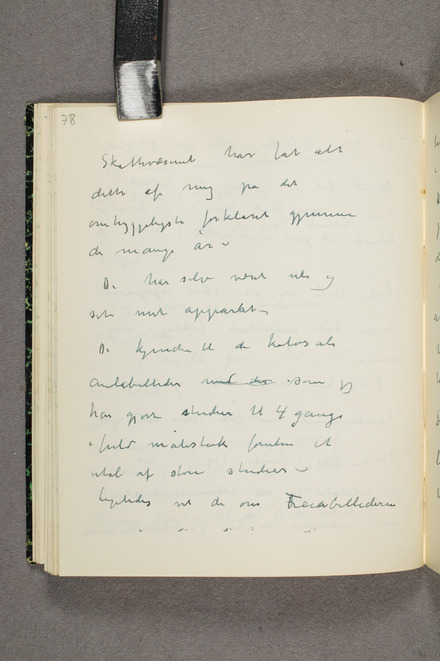 78
Skattevæsenet har fåt alt
dette af mig på det
omhyggeligste forklaret gjennem
de mange år –
De har selv været ute og
set mit apparat –
De kjender til de kolosale
aulabilleder med der som jeg
har gjort studier til 4 gange
i fuld målestok foruten et
utal af store studier –
ligeledes vet de om Freiabillederne